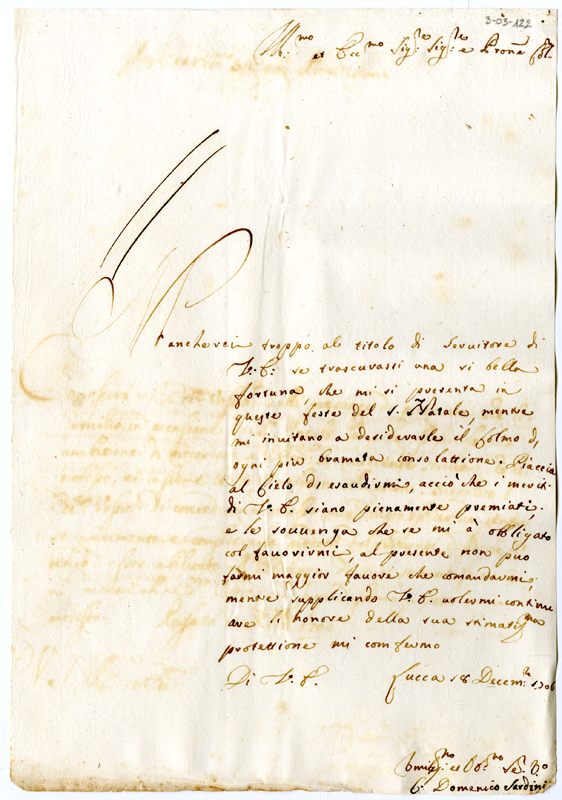 3-03-122
Ill:mo et Ecc:mo Sig:re Sig:re e Pron̄e Col:
Mancherei troppo al titolo di Seruitore di
V. E. se trascurassi una sì bella
fortuna, che mi si presenta in
queste feste del S. Natale, mentre
mi inuitano a desiderarle il Colmo di
ogni più bramata consolattione. Piaccia
al Cielo di esaudirmi, acciò che i meriti
di V. E. siano pienamente premiati,
e le souuenga che se mi à obbligato
col fauorirmi, al presente non può
farmi maggior fauore che comandarmi;
mentre supplicando V. E. uolermi continu
are li honore della sua stimatis:ma
protettione mi confermo
Di V. E. Lucca 18 Decem:re 1706
Vmilis:mo et Obb:mo Se: Vo
C. Domenico Sardini